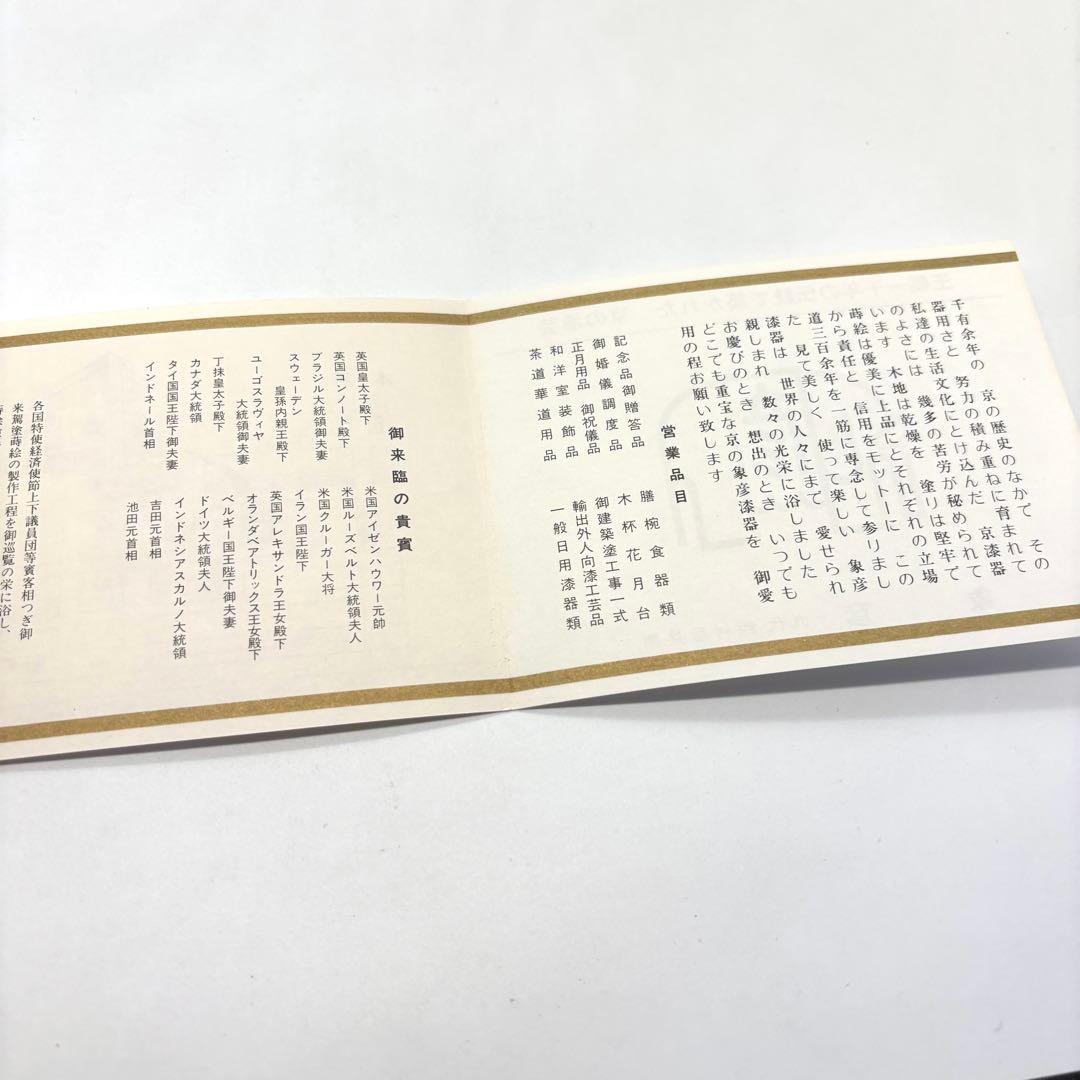 千有余年の　京の歴史のなかで　その
器用さと　努力の積み重ねに育まれて
私達の生活文化にとけ込んだ　京漆器
のよさには　幾多の苦労が秘められて
います　木地は乾燥を　塗りは堅牢で
蒔絵は優美に上品にとそれぞれの立場
から責任と　信用をモットーに　この
道三百余年を一筋に専念して参りまし
た　見て美しく　使って楽しい　象彦
漆器は　世界の人々にまで　愛せられ
親しまれ　数々の光栄に浴しました
お慶びのとき　想出のとき　いつでも
どこでも重宝な京の象彦漆器を　御愛
用の程お願い致します
営業品目
記念品御贈答品
御婚儀調度品
正月用品　御祝儀品
和洋室装飾品
茶道華道用品
膳椀食器類
木杯花月台
御建築塗工事一式
輸出外人向漆工芸品
一般日用漆器類
御来臨の貴賓
英国皇太子殿下
英国コンノート殿下
ブラジル大統領御夫妻
スウェーデン
皇孫内親王殿下
ユーゴスラヴィヤ
大統領御夫妻
丁抹皇太子殿下
カナダ大統領
タイ国国王陛下御夫妻
インドネール首相
米国アイゼンハウワー元帥
米国ルーズベルト大統領夫人
米国クルーガー大将
イラン国王陛下
英国アレキサンドラ王女殿下
オランダベアトリックス王女殿下
ベルギー国王陛下御夫妻
ドイツ大統領夫人
インドネシアスカルノ大統領
吉田元首相
池田元首相
各国特使経済使節上下議員団等賓客相つぎ御
来駕塗蒔絵の製作工程を御巡覧の栄に浴し、